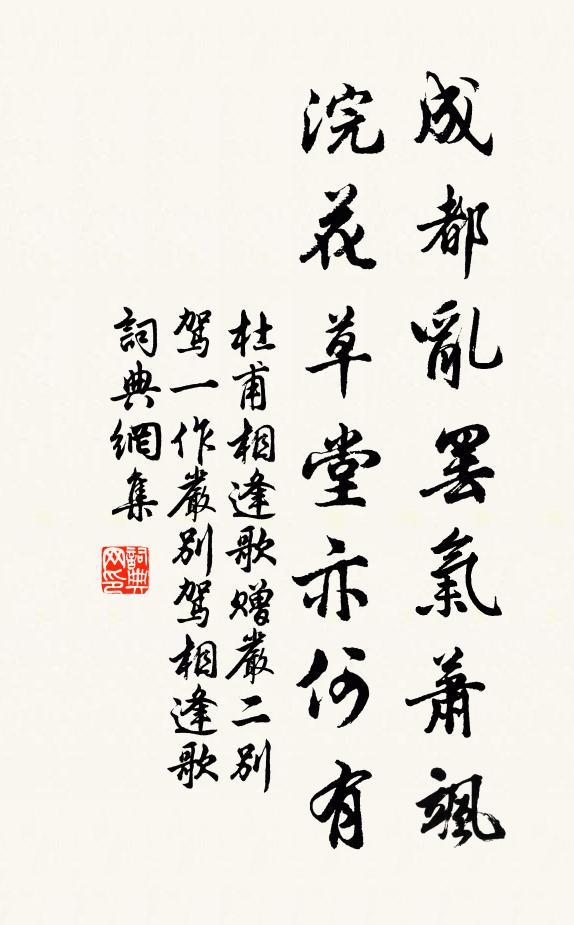 成都亂罷氣蕭颯
浣花草堂亦何有
杜甫相逢歌贈嚴二別
駕一作嚴別駕相逢歌
詞典網集
詞典
网印